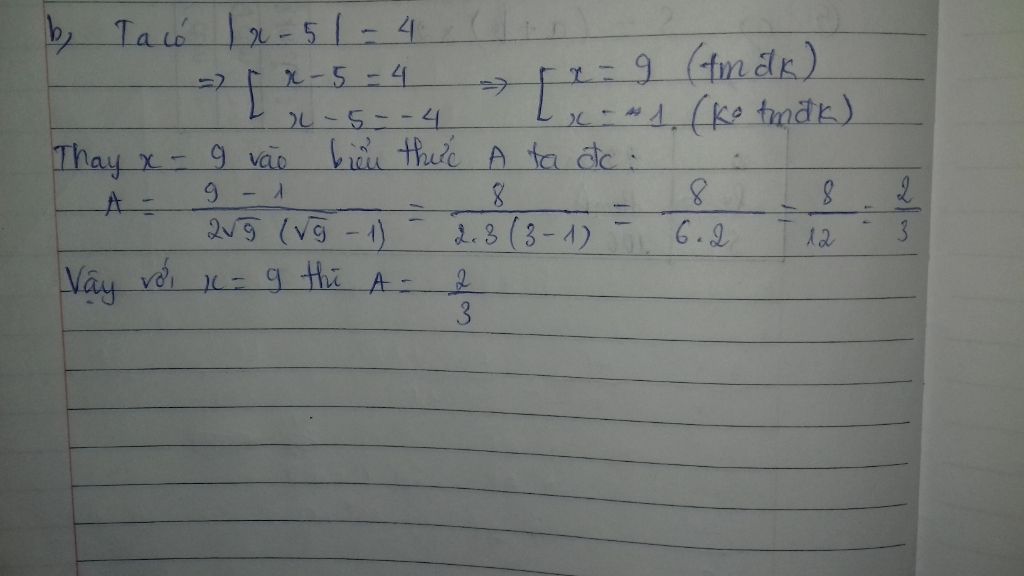 b, Ta có |x - 5| = 4
=> [ x - 5 = 4 => [ x = 9 (tmđk)
x - 5 = -4 x = 1. (ko tmđk)
Thay x = 9 vào biểu thức A ta đc:
A = \frac{9 - 1}{2\sqrt{9} (\sqrt{9} - 1)} = \frac{8}{2.3 (3 - 1)} = \frac{8}{6.2} = \frac{8}{12} = \frac{2}{3}
Vậy với x = 9 thì A = \frac{2}{3}